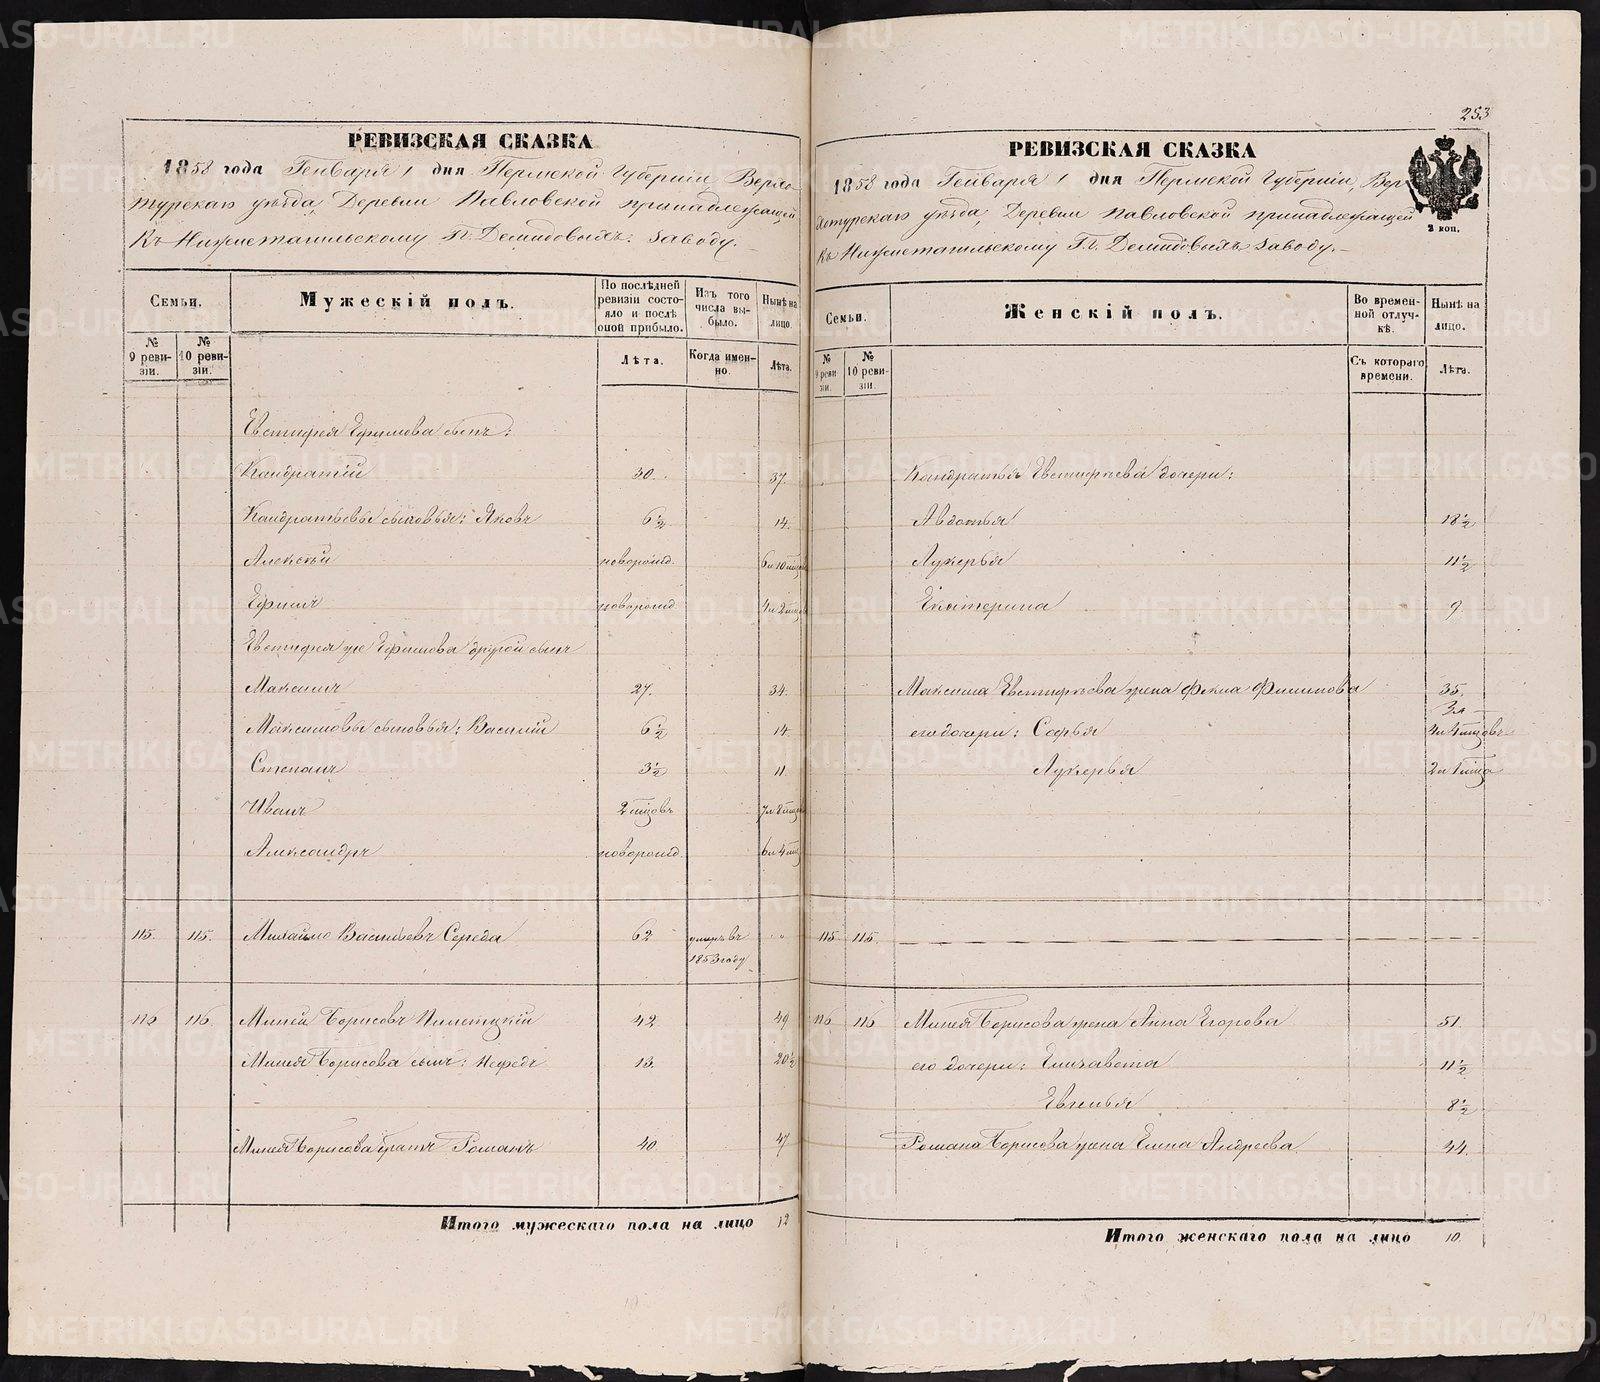 253
РЕВИЗСКАЯ СКАЗКА
1858 года Генваря 1 дня Пермской Губерніи, Верхо-
турскаго уѣзда, Деревни Павловской принадлежащей
Къ Нижнетагильскому Гг. Демидовыхъ заводу.
Семьи.
Мужескій полъ.
По послѣдней ревизіи состо-яло и послѣ оной прибыло.
Изъ того числа вы-было.
Нынѣ на лицо.
№ 9 реви-зіи.
№ 10 реви-зіи.
Лѣта.
Когда имен-но.
Лѣта.
Евстифея Ефимова сынъ:
Кандратій 30. 37.
Кандратьевы сыновья: Яковъ 6½ 14.
Алексѣй новорожд. 6 л 10 мцов
Ефимъ новорожд. 4 л 2 мцов
Евстифея же Ефимова другой сынъ
Максимъ 27. 34.
Максимовы сыновья: Василій 6½ 14.
Степанъ 3½ 11.
Иванъ 2 мцовъ 7 л 8 мцов
Александръ новорожд. 6 л 4 мц
115. 115. Михайло Васильевъ Середа 62 умеръ въ 1853 году
116 116. Миней Борисовъ 42. 49
Минея Борисова сынъ: Нефедъ 13. 20½
Минея Борисова братъ Романъ 40. 47
Итого мужескаго пола на лицо 12
РЕВИЗСКАЯ СКАЗКА
1858 года Генваря 1 дня Пермской Губерніи, Вер-
хотурскаго уѣзда, Деревни Павловской принадлежащей
Къ Нижнетагильскому Гг. Демидовыхъ заводу.
2 коп.
Семьи.
Женскій полъ.
Во времен-ной отлуч-кѣ.
Нынѣ на лицо.
№ 9 реви-зіи.
№ 10 реви-зіи.
Съ котораго времени.
Лѣта.
Кандратья Евстифѣева дочери:
Авдотья 18½
Лукерья 11½
Екатерина 9.
Максима Евстифѣева жена Фекла Филипова 35.
его дочери: Софья 4 л 4 мцовъ
Лукерья 2 л 1 мца
115 115.
116 116 Минея Борисова жена Анна Егорова 51.
его дочери: Елизавета 11½
Евгенья 8½
Романа Борисова жена Елена Андреева 44.
Итого женскаго пола на лицо 10.
METRIKI.GASO-URAL.RU